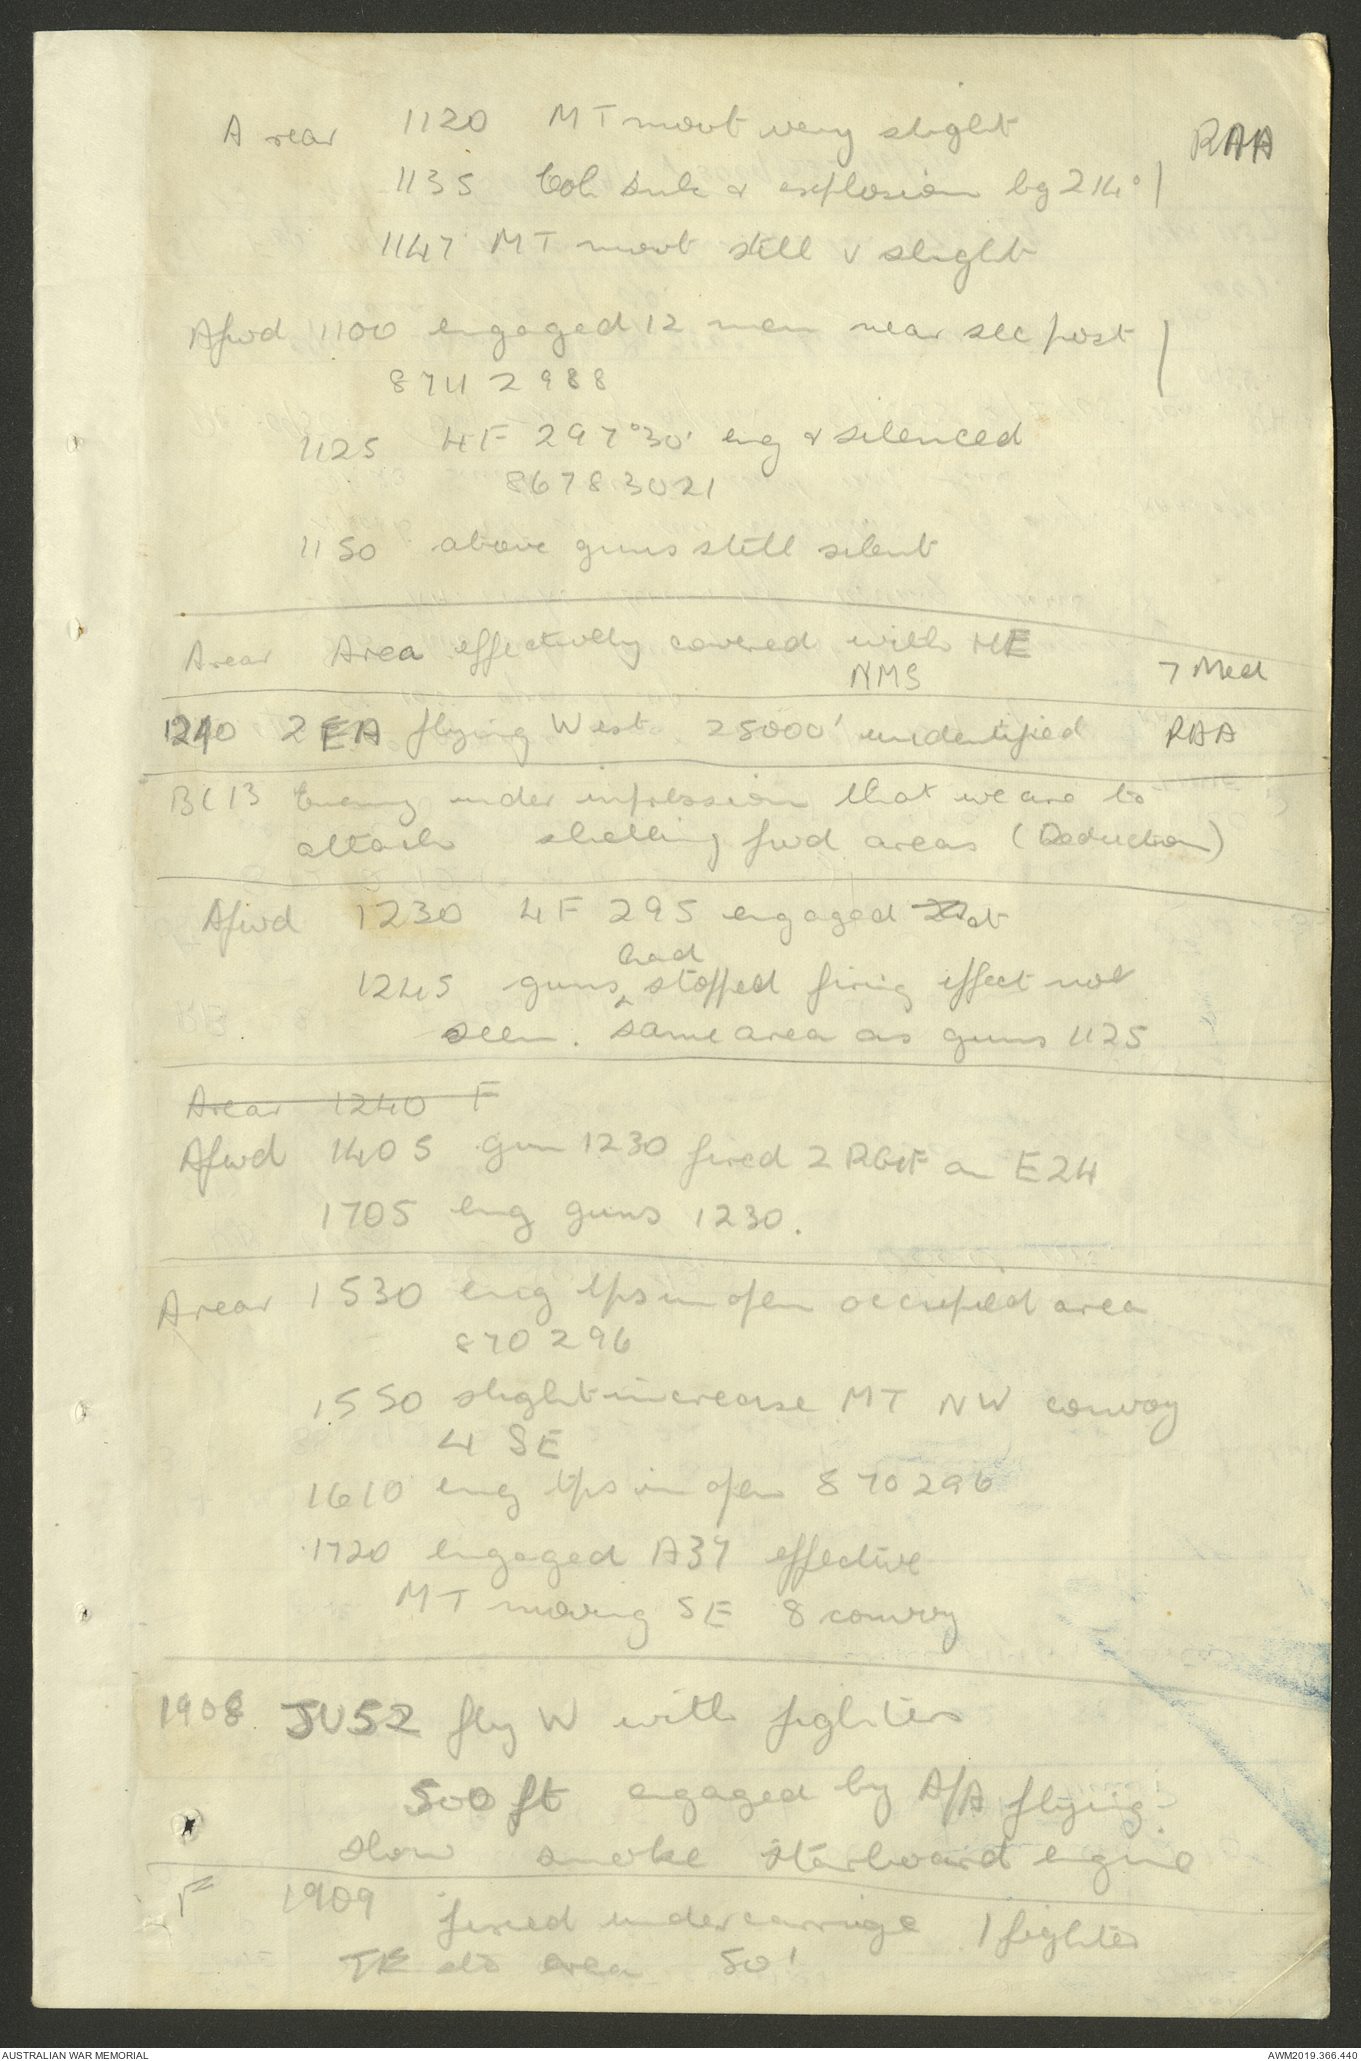 A rear 1120 MT movt very slight RAA
1135 Col smk & explosion bg 214°
1147 MT movt still v slight
A fwd 1100 engaged 12 men near sec post
8711 2988
1125 4F 297°30' eng & silenced
8678 3021
1150 above guns still silent
A rear Area effectively covered with HE
NMS 7 Med
1240 2 EA flying West 25000' unidentified RAA
BC 13 Enemy under impression that we are to
attack shelling fwd areas (Deduction)
A fwd 1230 4F 295 engaged at
had
1245 guns ^ stopped firing effect not
seen. Same area as guns 1125
A rear 1240 F
A fwd 1405 gun 1230 fired 2 RGF on E24
1705 eng guns 1230.
A rear 1530 eng tps in open occupied area
870296
1550 slight increase MT NW convoy
4 SE
1610 eng tps in open 870296
1720 engaged A37 effective
MT moving SE 8 convoy
1908 JU52 fly W with fighters
500 ft engaged by A/A flying
slow smoke starboard engine
F 1909 fixed undercarriage 1 fighter
area 50'
AUSTRALIAN WAR MEMORIAL AWM2019.366.440